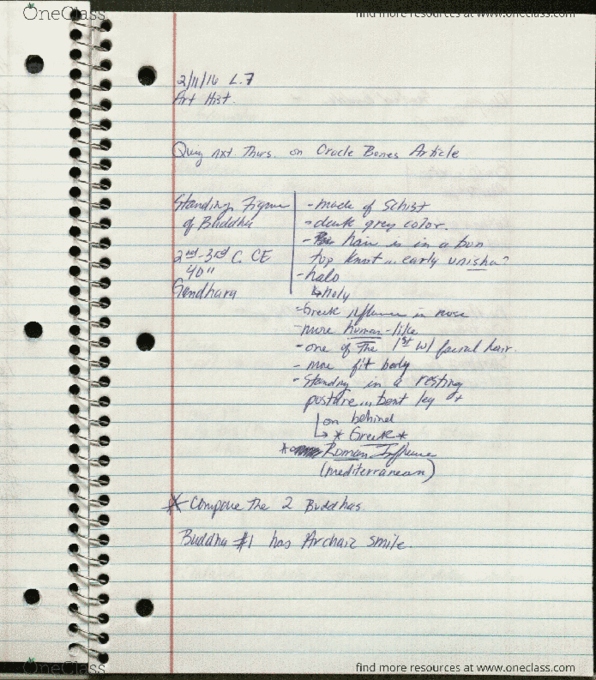 OneClass
find more resources at www.oneclass.com
2/11/16 L.7
Art Hist.
Quiz nxt Thurs. on Oracle Bones Article
Standing Figure
of Buddha
2nd-3rd C. CE
40"
Gandhara
- made of Schist
- dark grey color.
- hair is in a bun
top knot early unisha?
- halo
↳ holy
- Greek influence in nose
- more human-like
- one of the 1st w/ facial hair.
- more fit body
- Standing in a resting
posture bent leg
on behind
↳ * Greek *
* Roman Influence
(mediterranean)
* Compare the 2 Buddhas.
Buddha #1 has Archaic smile.
OneClass
find more resources at www.oneclass.com